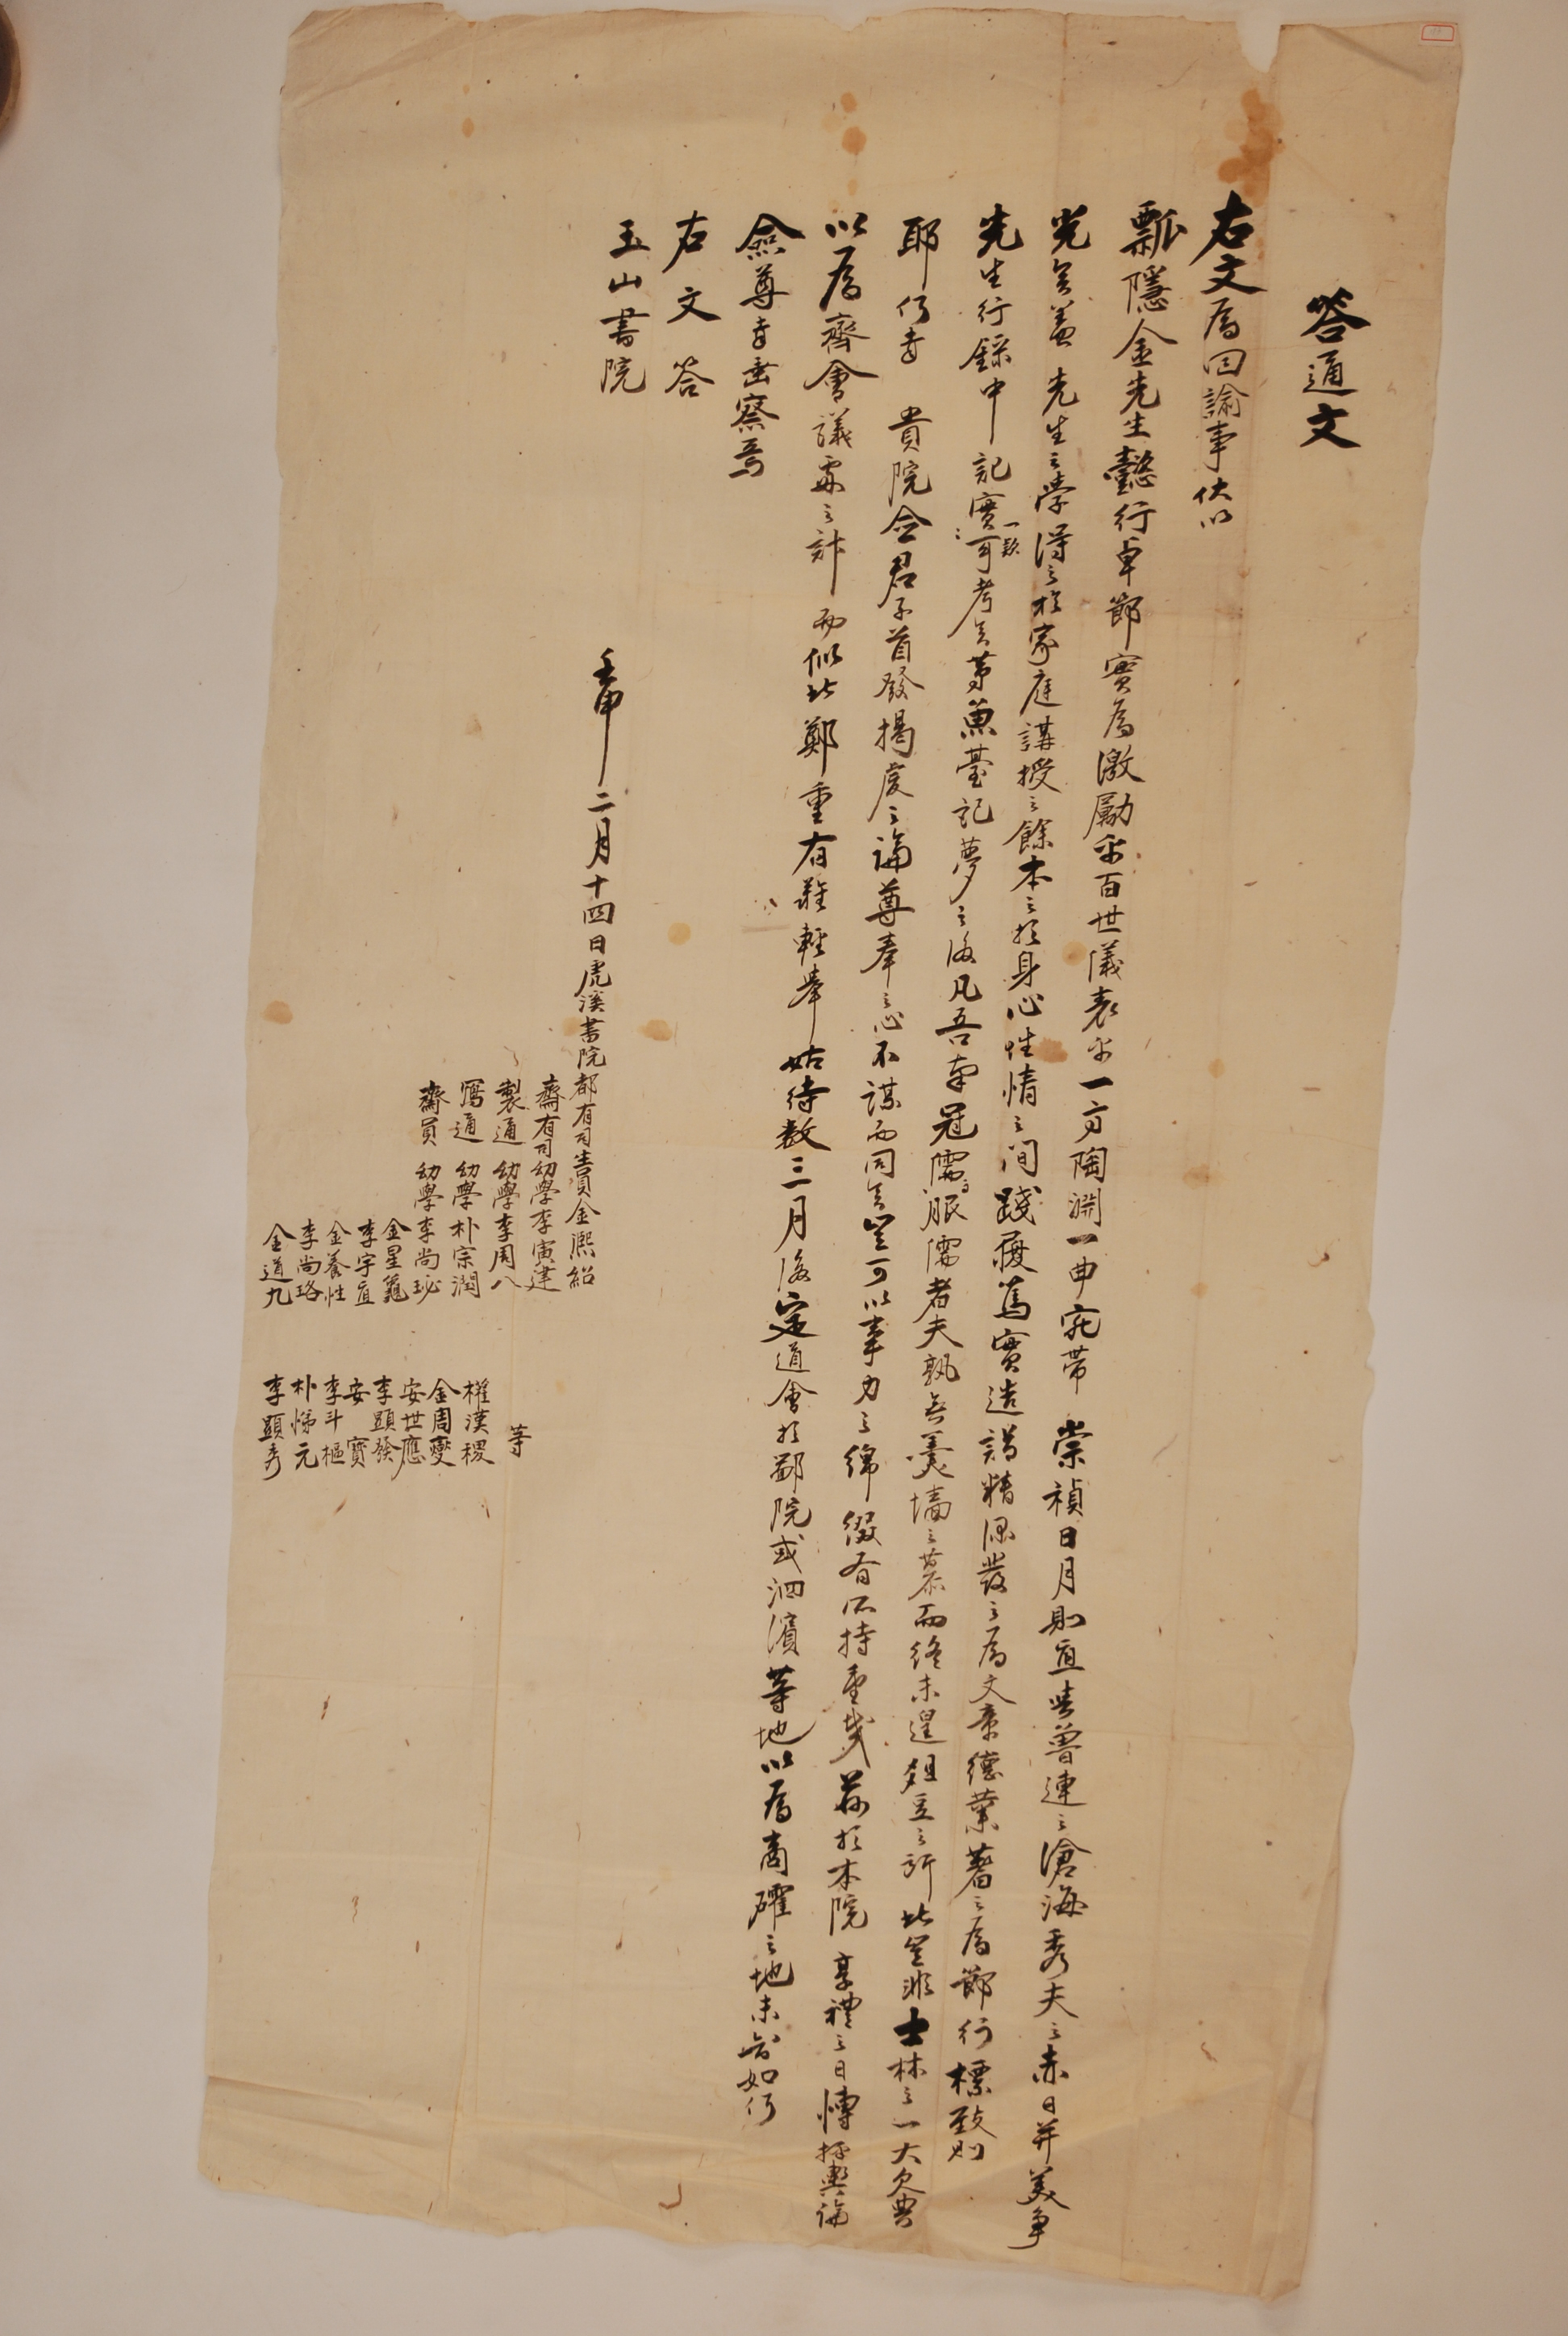 答通文
右文爲回諭事伏以
瓢隱金先生懿行卓節實爲激勵乎百世儀表乎一方陶淵一曲宛帶 崇禎日月則直與魯連之滄海秀夫之赤日并美爭
光矣盖 先生之學得之於家庭講授之餘本之於身心性情之間踐履篤實造詣精深發之爲文章德業著之爲節行標致則
先生行錄中記實一款可考矣第魚臺記夢之後凡吾南冠儒服儒者夫孰無羹墻之慕而終未遑俎豆之所此豈非士林之一大欠典
耶何幸 貴院僉君子首發揭虔之論尊奉之心不謀而同矣豈可以事力之綿綴有所持重哉茲於本院 享禮之日博採輿論
以爲齊會議處之計而似此鄭重有難輕擧姑待數三月後定道會於鄙院或泗濱等地以爲商確之地未知如何
僉尊幸垂察焉
右文答
玉山書院
壬申二月十四日虎溪書院都有司生員金熙紹
齋有司幼學李寅建
製通 幼學李周八 等
寫通 幼學朴宗潤 權漢稷
齋員 幼學李尚玅 金周燮
金星龜 安世應
李宇直 李顯發
金養性 安寶
李尚珞 李斗樞
金道九 朴悌元
李顯秀